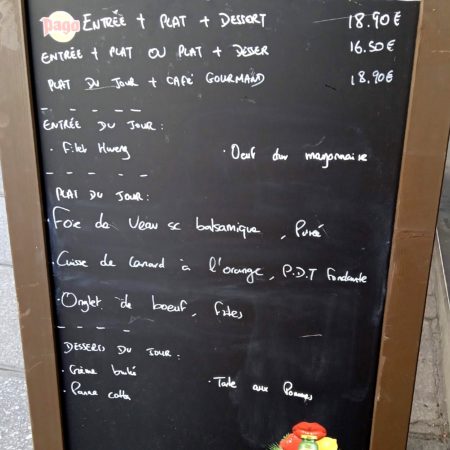 pago ENTRÉE + PLAT + DESSERT 18.90€
ENTRÉE + PLAT OU PLAT + DESSER 16.50€
PLAT DU JOUR + CAFÉ GOURMAND 18.90€
- - - - -
ENTRÉE DU JOUR :
· Filet Hareng · Oeuf dur mayonnaise
- - - - -
PLAT DU JOUR :
· Foie de Veau sc balsamique, Purée
· Cuisse de Canard à l'orange, P.D.T fondante
· Onglet de boeuf, frites
- - - -
DESSERTS DU JOUR :
· Crème brulé · Tarte aux Pommes
· Panna cotta